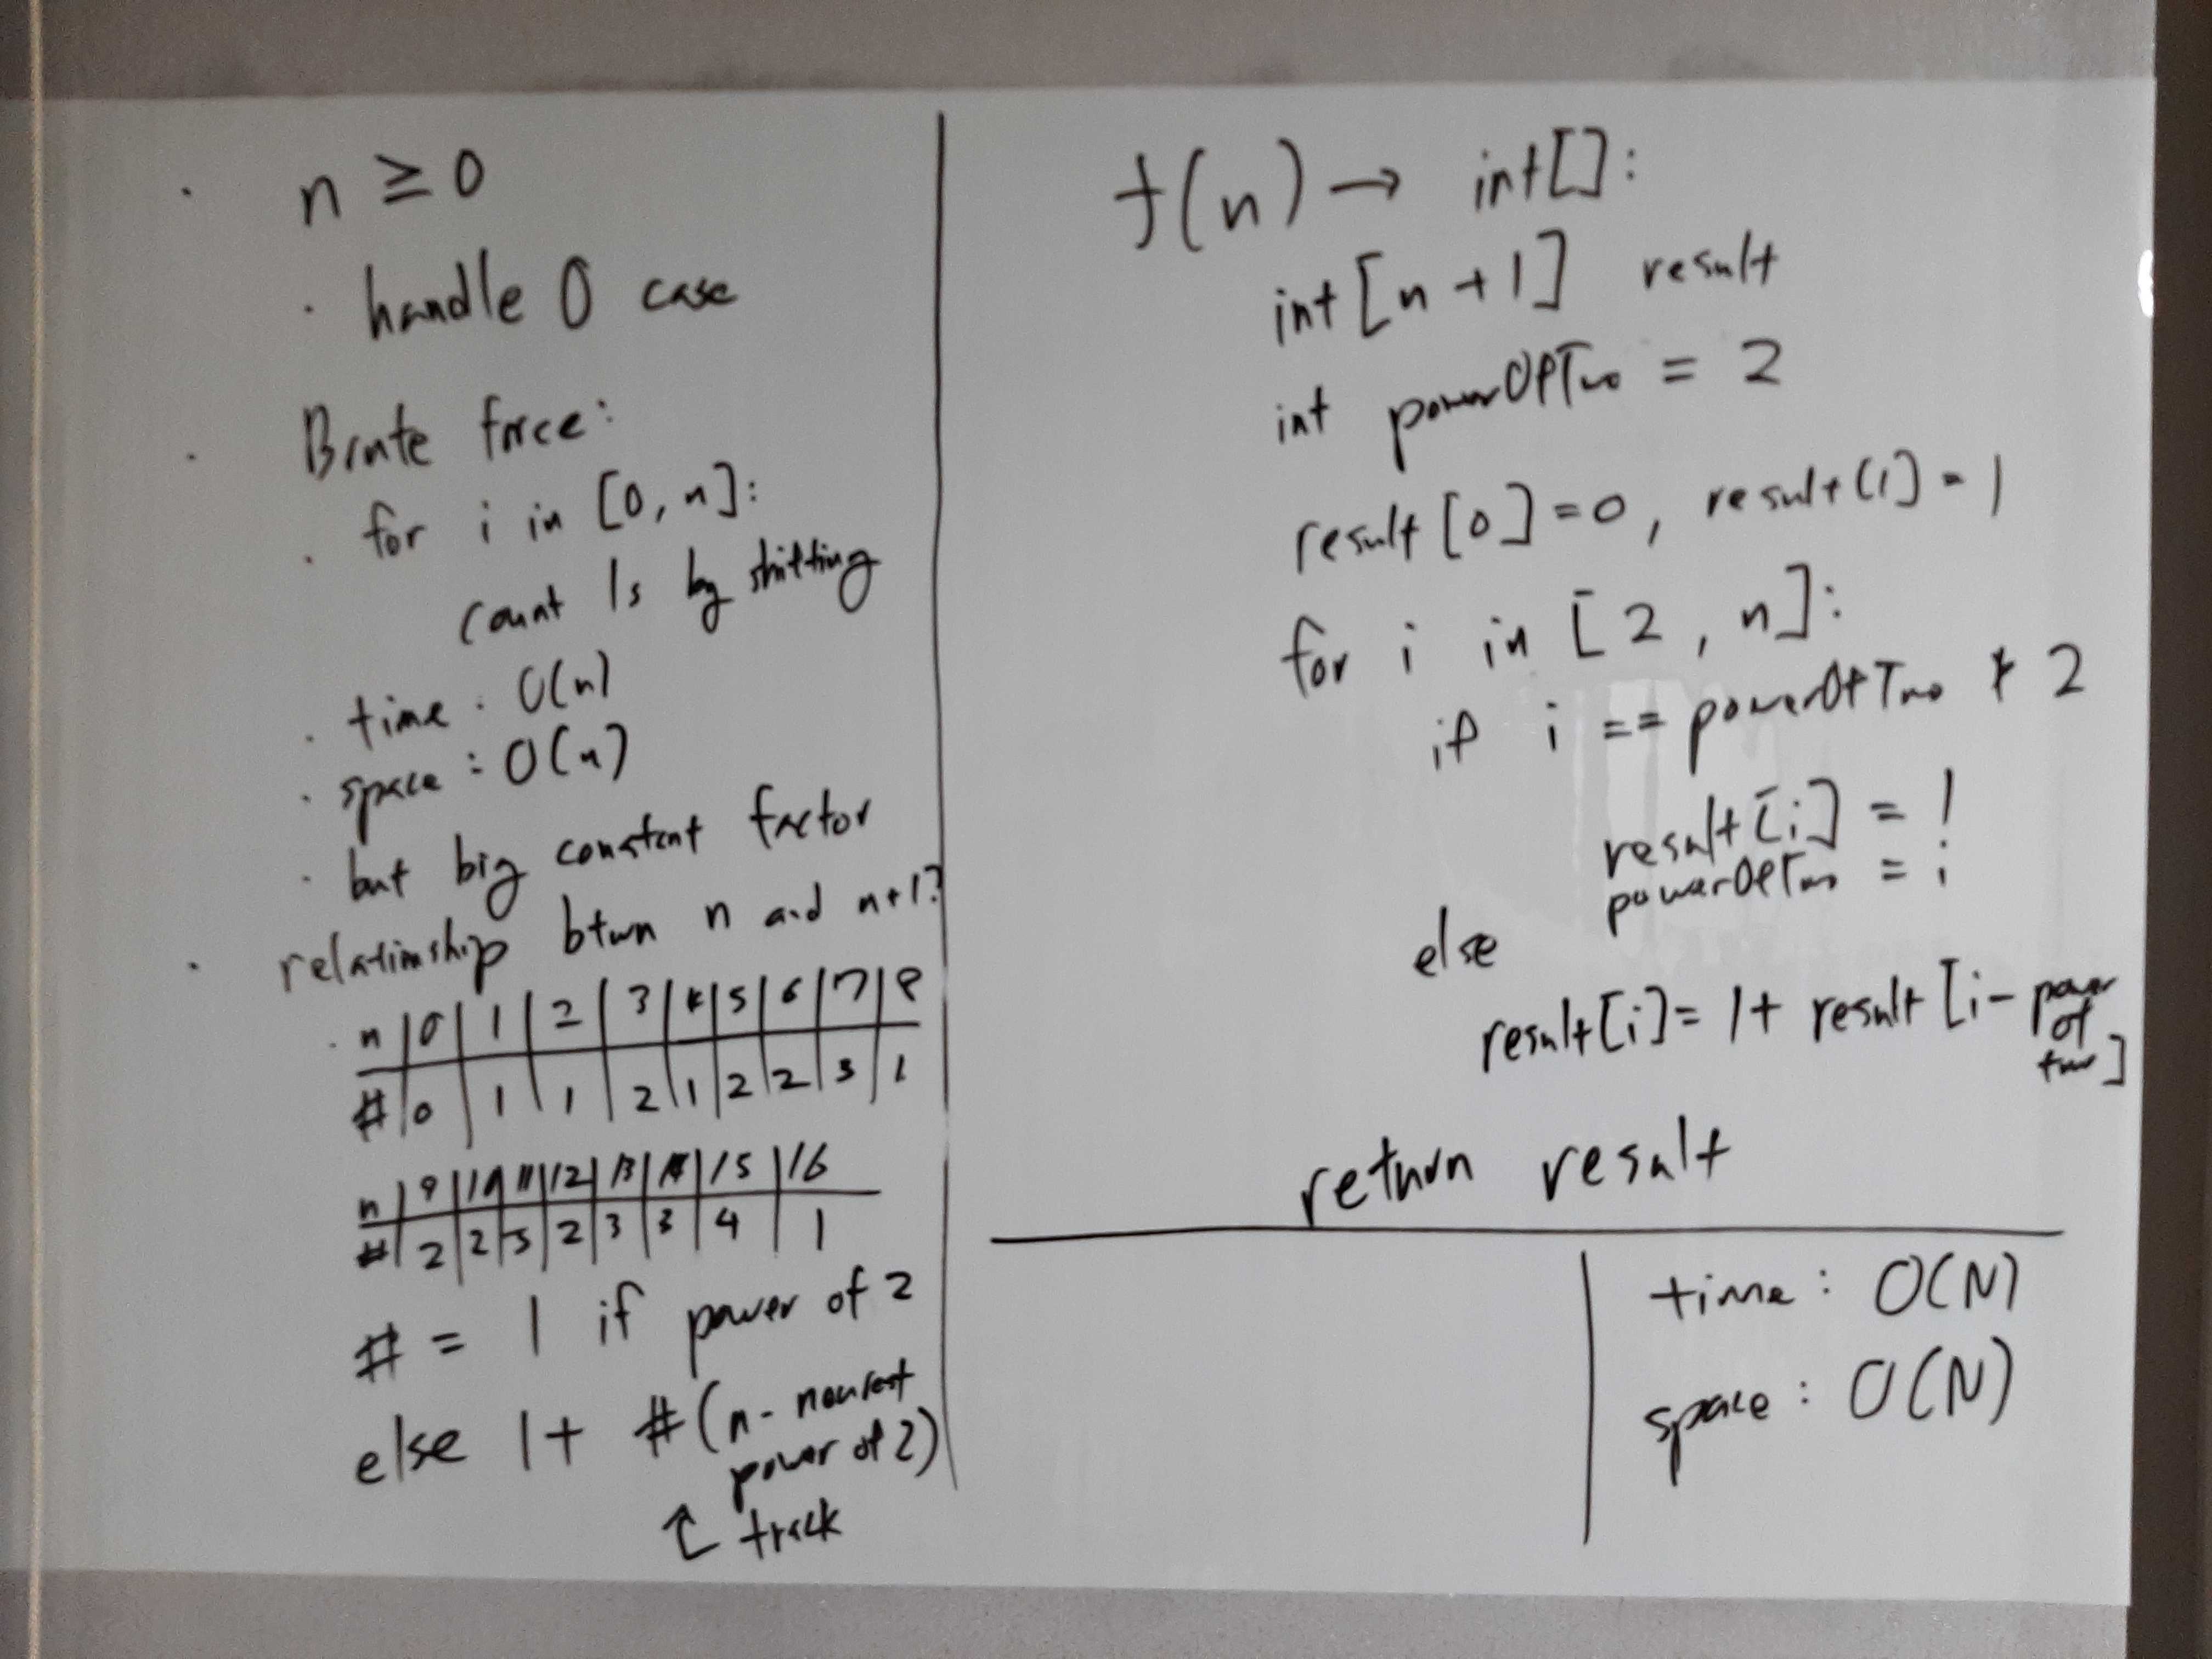 · n ≥ 0
· handle 0 case
· Brute force:
· for i in [0, n]:
count 1s by shifting
· time: O(n)
· space: O(n)
· but big constant factor
· relationship btwn n and n+1?
· n | 0 | 1 | 2 | 3 | 4 | 5 | 6 | 7 | 8
# | 0 | 1 | 1 | 2 | 1 | 2 | 2 | 3 | 1
n | 9 | 10 | 11 | 12 | 13 | 14 | 15 | 16
# | 2 | 2 | 3 | 2 | 3 | 3 | 4 | 1
# = 1 if power of 2
else 1+ #(n - nearest
power of 2)
↑ track
f(n) → int[]:
int[n+1] result
int powerOfTwo = 2
result[0]=0, result[1]=1
for i in [2, n]:
if i == powerOfTwo * 2
result[i] = 1
powerOfTwo = i
else
result[i]= 1+ result[i- power
of
two]
return result
time: O(N)
space: O(N)